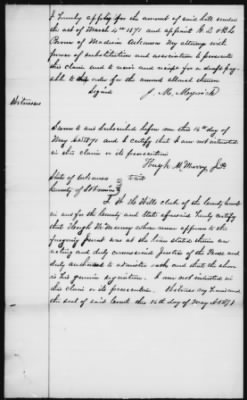 I hereby apply for the amount of said bill under
the act of March 3rd 1871 and appoint
of Madison Arkansas my attorney with
power of substitution and association to prosecute
this claim and to receive and receipt for a draft pay
able to order for the amount allowed
Signed J. M.
Witnesses
Sworn to and subscribed before me this 16th day of
May AD 1871 and I certify that I am not interested
in this claim or its prosecution.
Hugh McMurry J.P.
State of Arkansas
County of St Francis
I Clerk of the County Court
in and for the County and State aforesaid hereby certify
that Hugh McMurry whose name appears to the
foregoing Jurat was at the time stated therein an
acting and duly commissioned Justice of the Peace and
duly authorized to administer oath and that the above
is his genuine signature. I am not interested in
this claim or its prosecution. Witness my hand and
the seal of said Court this 16th day of May AD 1871